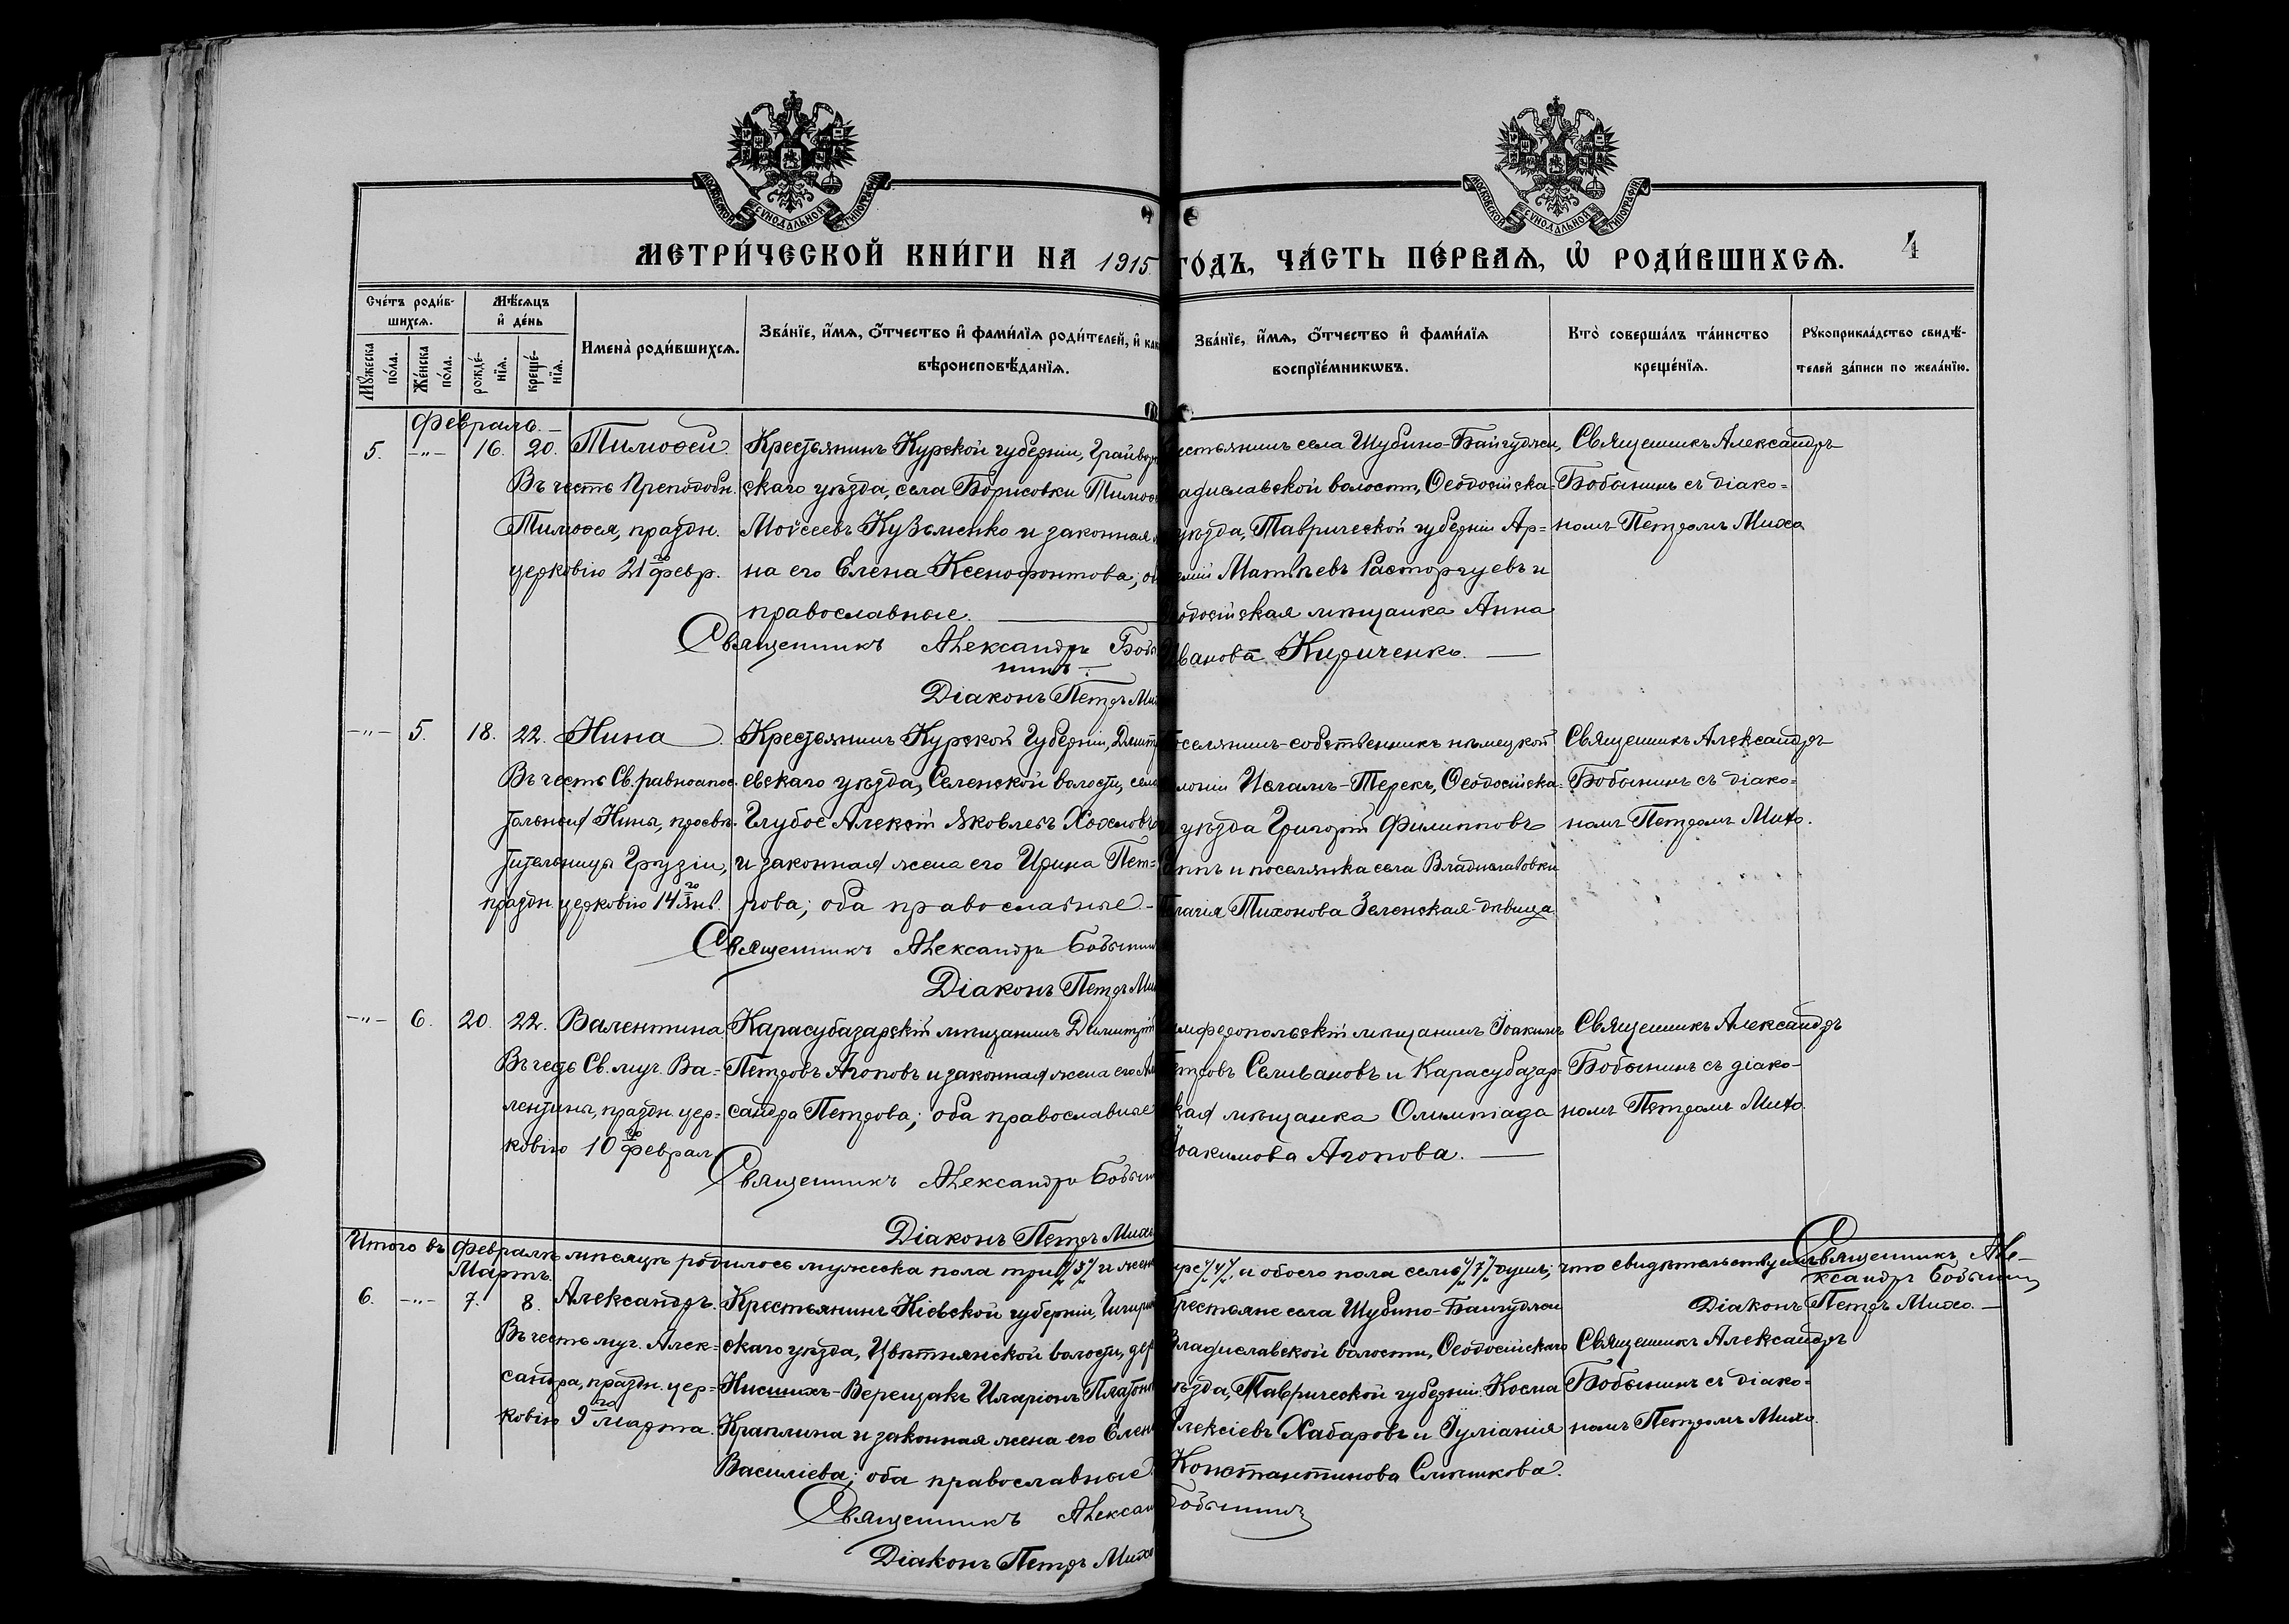 МОСКОВСКОЙ СѴНОДАЛЬНОЙ ТИПОГРАФІИ
МОСКОВСКОЙ СѴНОДАЛЬНОЙ ТИПОГРАФІИ
МЕТРИ́ЧЕСКОЙ КНИ́ГИ НА 1915 ГО́ДЪ, ЧА́СТЬ ПЕ́РВАѦ, Ѡ҆ РОДИ́ВШИХСѦ. 4
Сче́тъ роди́в-
шихсѧ.
Мѣ́сѧцъ
и҆ де́нь
Мꙋ́жеска по́ла.
Же́нска по́ла.
рожде́-
нїѧ.
креще́-
нїѧ.
Имена̀ роди́вшихсѧ.
Зва́нїе, и҆́мѧ, ѻ҆́тчество и҆ фами́лїѧ роди́телей, и҆
вѣроисповѣ́данїѧ.
Зва́нїе, и҆́мѧ, ѻ҆́тчество и҆ фами́лїѧ
воспрїе́мникѡвъ.
Кто̀ соверша́лъ та́инство
креще́нїѧ.
Рꙋкоприкла́дство свидѣ́-
телей за́писи по жела́нїю.
Февраль.—
5. —"— 16. 20. Тимоѳей
Въ честь Преподобн.
Тимоѳея, праздн.
церковію 21го февр.
Крестьянинъ Курской губерніи, Грайвор
скаго уѣзда, села Борисовки Тимоѳ
Моѵсеевъ Кузьменко и законная
на его Елена Ксенофонтова; о
православные.
Священникъ Александръ Бобы
нинъ.—
Діаконъ Петръ Ми
естьянинъ села Шубино-Байгуджи,
адиславской волости, Ѳеодосійска=
уѣзда, Таврической губерніи Ар=
емій Матѳѣевъ Расторгуевъ и
одосійская мѣщанка Анна
ванова Кириченко. —
Священникъ Александръ
Бобынинъ съ діако=
номъ Петромъ Михо
—"— 5. 18. 22. Нина
Въ честь Св. равноапос.
тольныя Нины, просвѣ.
тительницы Грузіи,
праздн. церковію 14го Янв.
Крестьянинъ Курской Губерніи, Дмит
евскаго уѣзда, Селенской волости, села
Глубое Алексѣй Яковлевъ Хохловъ
и законная жена его Ирина Пет=
рова; оба православные —
Священникъ Александръ Бобынин
Діаконъ Петръ Ми
оселянинъ-собственникъ нѣмецкой
лоніи Исламъ-Терекъ, Ѳеодосійска=
уѣзда Григорій Филипповъ
и поселянка села Владиславовки
лагія Тихонова Зеленская-дѣвица
Священникъ Александръ
Бобынинъ съ діако=
номъ Петромъ Михо.
—"— 6. 20. 22. Валентина
Въ честь Св. муч. Ва=
лентины, праздн. цер=
ковію 10го феврал.
Карасубазарскій мѣщанинъ Димитрій
Петровъ Агоповъ и законная жена его Ал
сандра Петрова; оба православные
Священникъ Александръ Бобын
Діаконъ Петръ Михо
имферопольскій мѣщанинъ Іоакимъ
етровъ Селивановъ и Карасубазар=
кая мѣщанка Олимпіада
Іоакимова Агопова. —
Священникъ Александръ
Бобынинъ съ діако=
номъ Петромъ Михо.
Итого въ февралѣ мѣсяцѣ родилось мужеска пола три /3/ и жен
ре /4/, и обоего пола семь /7/ душъ; что свидѣтельствуемъ Священникъ Але-
ксандръ Бобынинъ
Діаконъ Петръ Михо.—
Мартъ.
6. —"— 7. 8. Александръ.
Въ честь муч. Алек=
сандра, праздн. цер=
ковію 9го марта.
Крестьянинъ Кіевской губерніи, Чигирин
скаго уѣзда, Цвѣтнянской волости, дер
Нисшихъ-Верещакъ Иларіонъ Платон
Краплина и законная жена его Елен
Василіева; оба православные.
Священникъ Алексан
Діаконъ Петръ Михо
Крестьяне села Шубино-Байгуджи
Владиславской волости, Ѳеодосійскаго
уѣзда, Таврической губерніи: Косма
Алексіевъ Хабаровъ и Іуліанія
Константинова Слѣпикова.
Бобынинъ
Священникъ Александръ
Бобынинъ съ діако=
номъ Петромъ Михо.